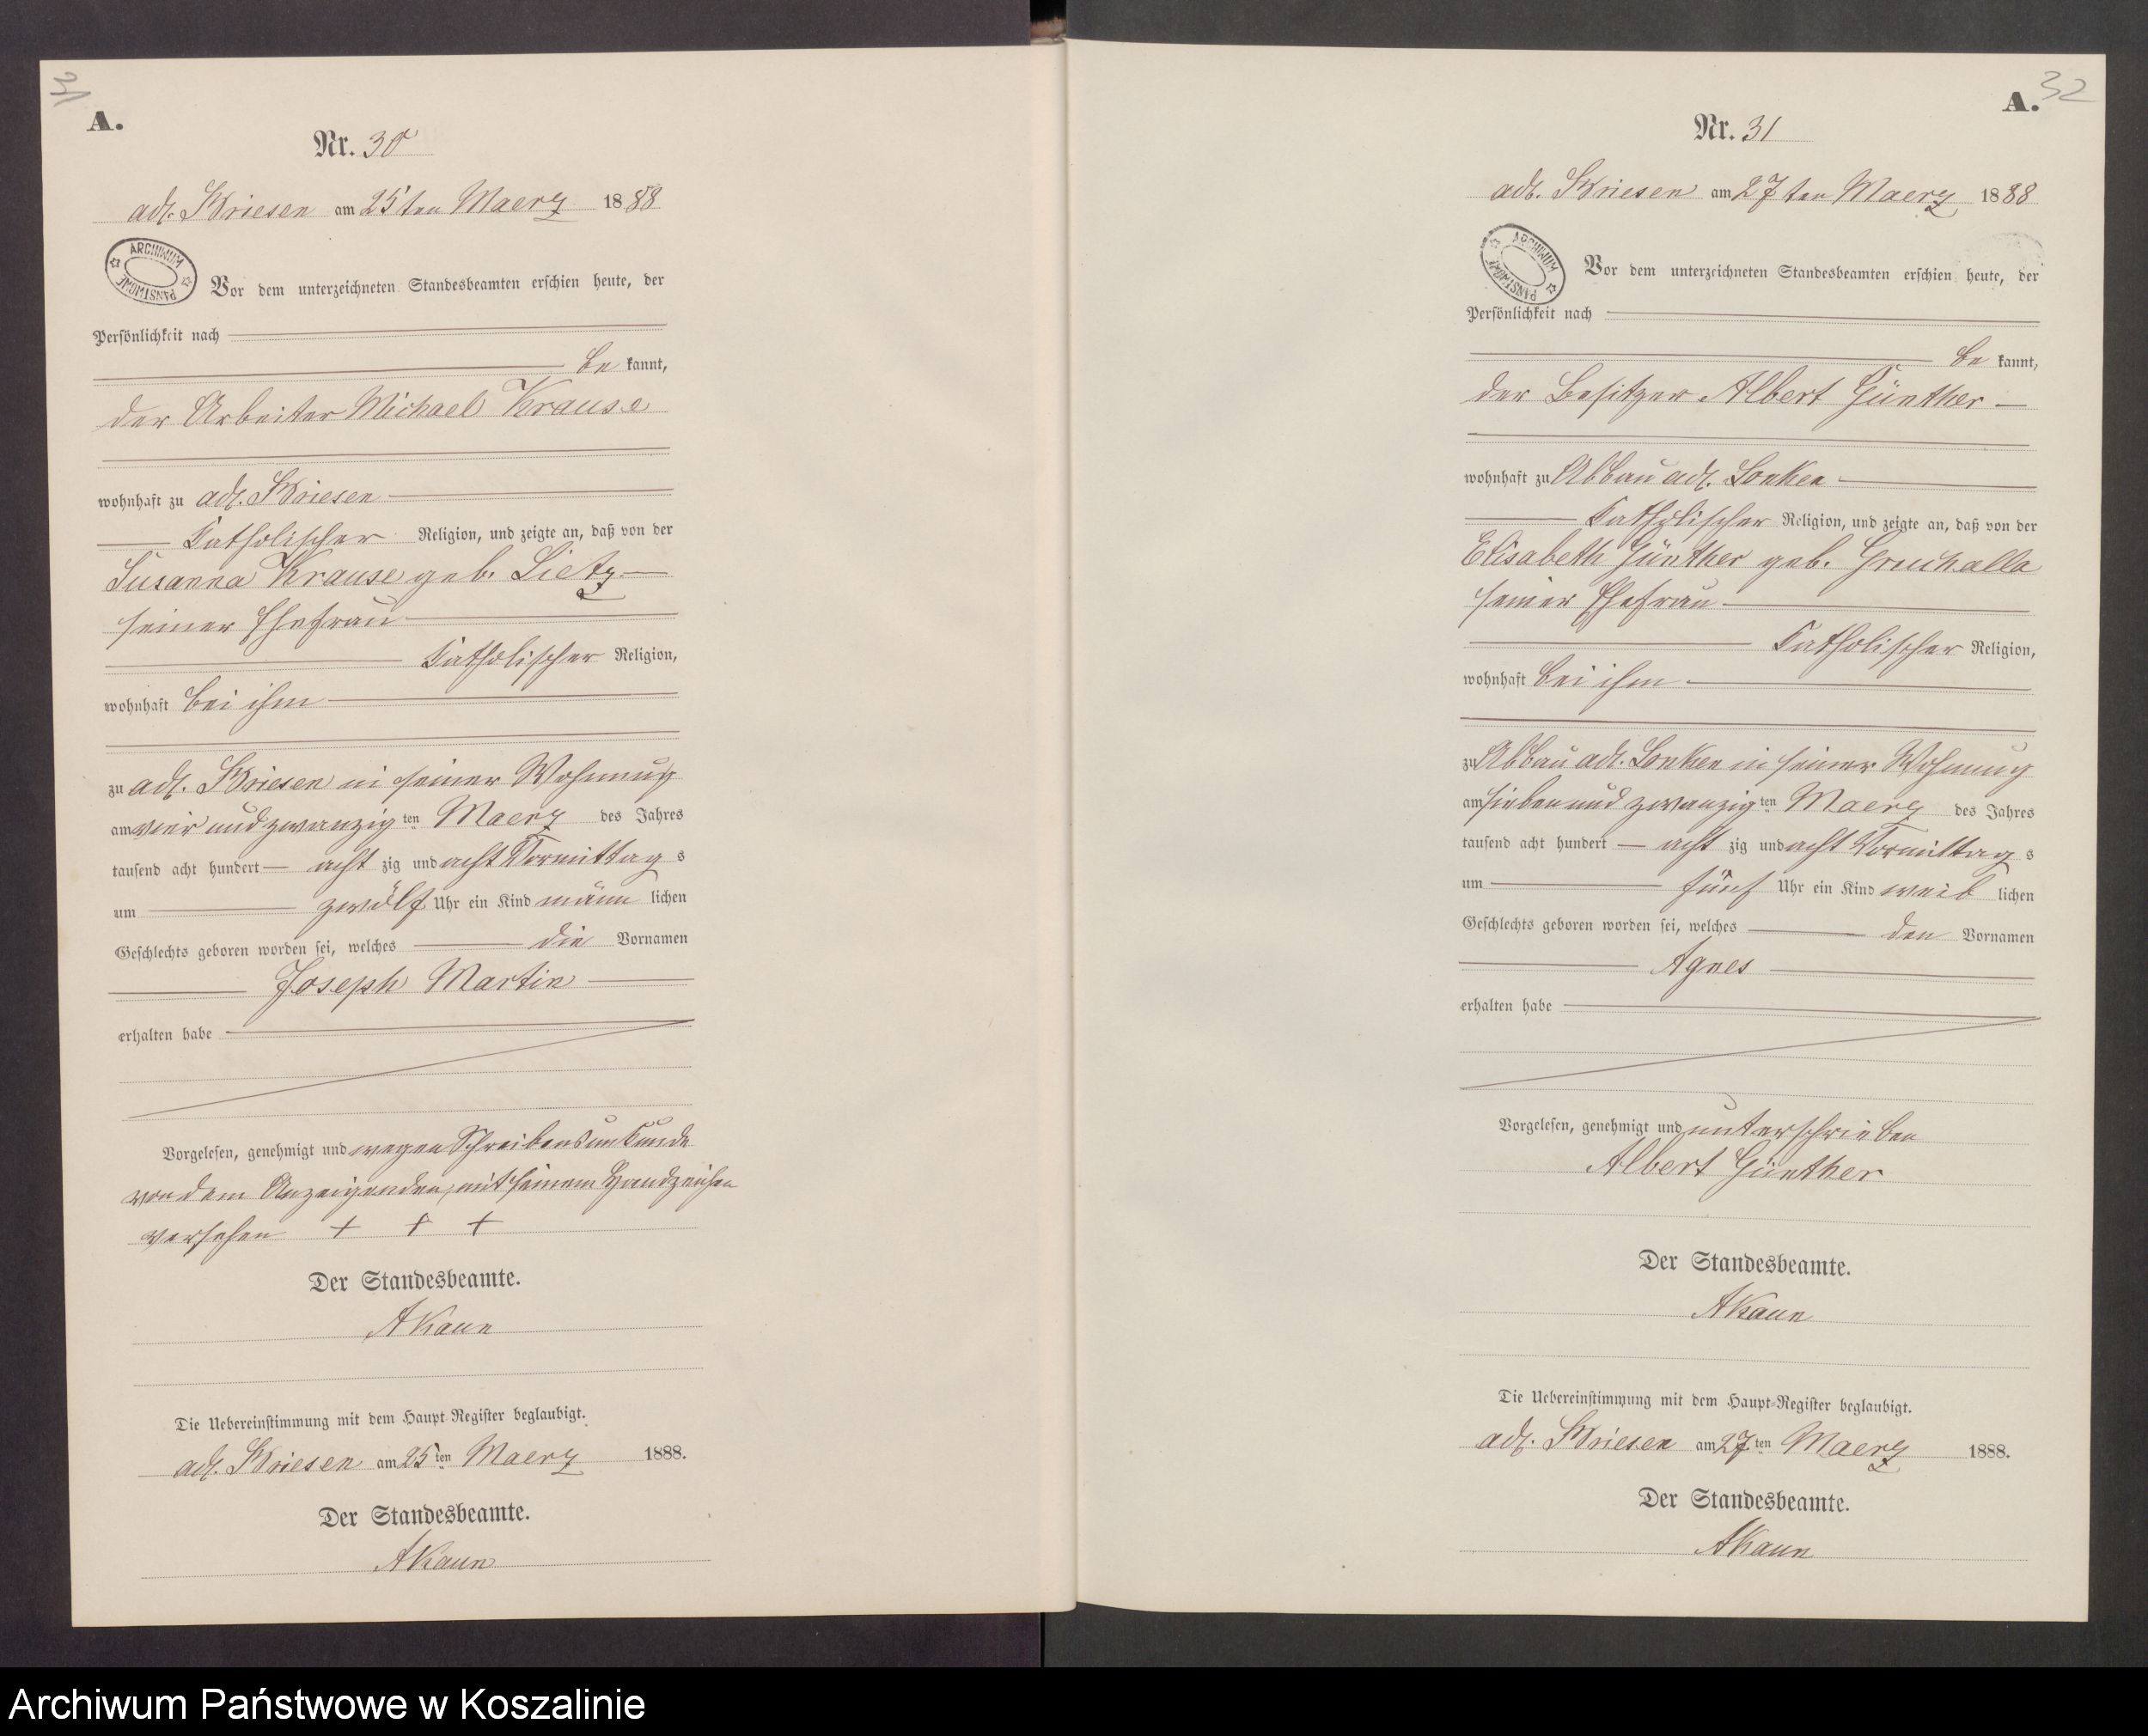 A.
Nr. 30
adl. Briesen am 25ten Maerz 1888
ARCHIWUM PAŃSTWOWE
Vor dem unterzeichneten Standesbeamten erschien heute, der
Persönlichkeit nach
be kannt,
der Arbeiter Michael Krause
wohnhaft zu adl. Briesen
katholischer Religion, und zeigte an, daß von der
Susanna Krause geb. Lietz
seiner Ehefrau
katholischer Religion,
wohnhaft bei ihm
zu adl. Briesen in seiner Wohnung
am vier und zwanzig ten Maerz des Jahres
tausend acht hundert acht zig und acht Vormittag s
um zwölf Uhr ein Kind männ lichen
Geschlechts geboren worden sei, welches die Vornamen
Joseph Martin
erhalten habe
Vorgelesen, genehmigt und wegen Schreibensunkunde
von dem Anzeigenden, mit seinem Handzeichen
versehen + + +
Der Standesbeamte.
AKaun
Die Uebereinstimmung mit dem Haupt-Register beglaubigt.
adl. Briesen am 25ten Maerz 1888.
Der Standesbeamte.
AKaun
32
A.
Nr. 31
adl. Briesen am 27ten Maerz 1888
ARCHIWUM PAŃSTWOWE
Vor dem unterzeichneten Standesbeamten erschien heute, der
Persönlichkeit nach
be kannt,
der Besitzer Albert Günther
wohnhaft zu Abbau adl. Lonken
katholischer Religion, und zeigte an, daß von der
Elisabeth Günther geb. Gruchalla
seiner Ehefrau
katholischer Religion,
wohnhaft bei ihm
zu Abbau adl. Lonken in seiner Wohnung
am sieben und zwanzig ten Maerz des Jahres
tausend acht hundert acht zig und acht Vormittag s
um fünf Uhr ein Kind weib lichen
Geschlechts geboren worden sei, welches den Vornamen
Agnes
erhalten habe
Vorgelesen, genehmigt und unterschrieben
Albert Günther
Der Standesbeamte.
AKaun
Die Uebereinstimmung mit dem Haupt-Register beglaubigt.
adl. Briesen am 27ten Maerz 1888.
Der Standesbeamte.
AKaun
Archiwum Państwowe w Koszalinie